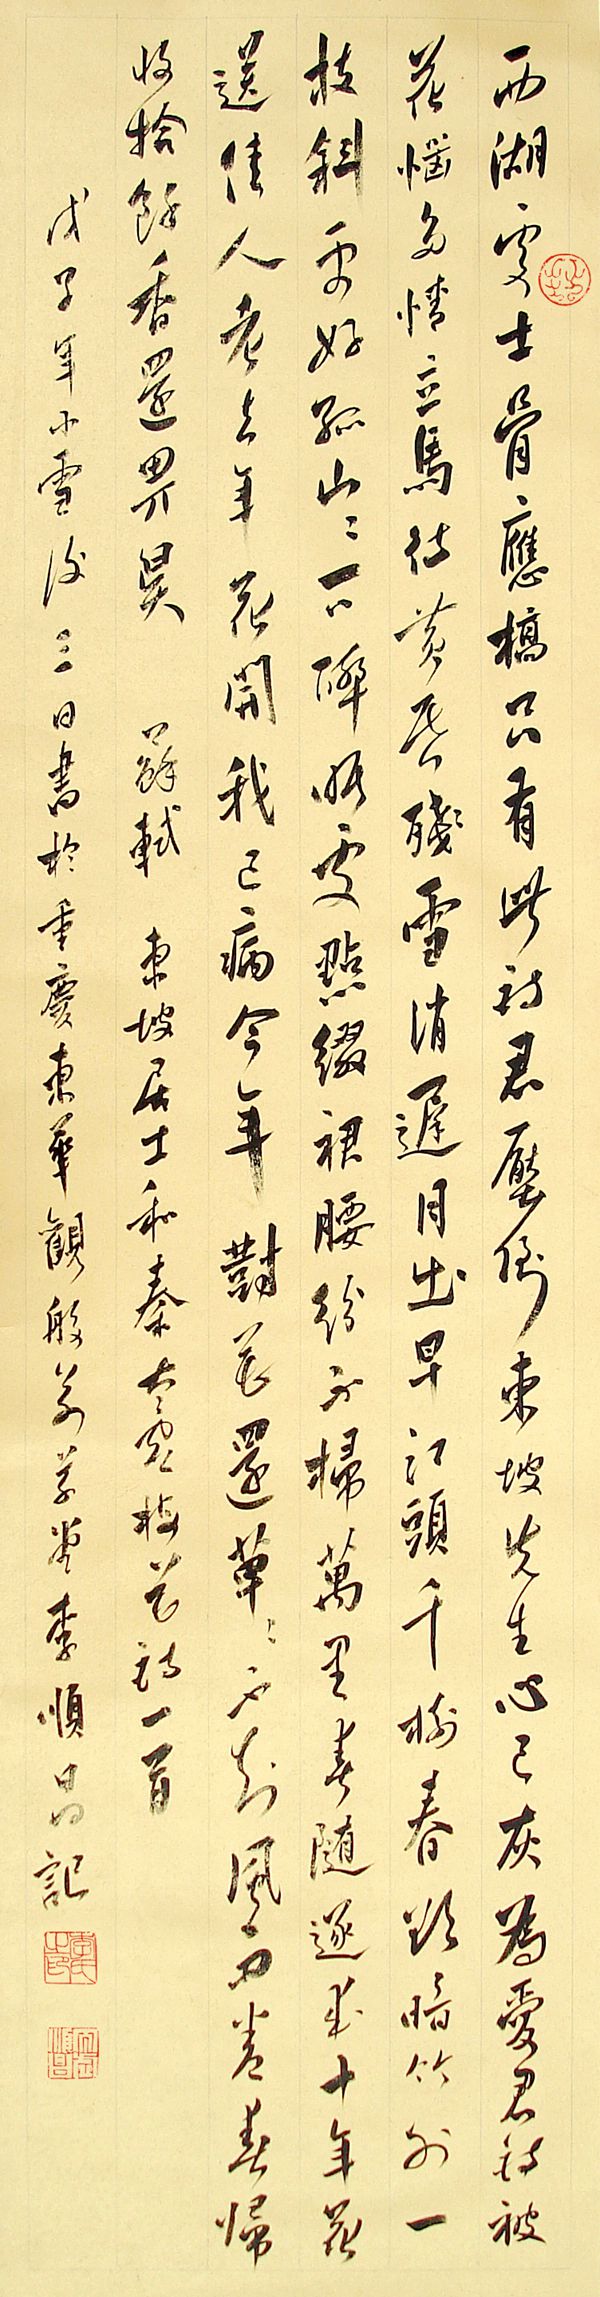 西湖處士骨應槁只有此詩君壓倒東坡先生心已灰為愛君詩被
花惱多情立馬待黃昏殘雪消遲月出早江頭千樹春欲暗竹外一
枝斜更好孤山〻下醉眠處點綴裙腰紛不掃萬里春隨逐來十年花
送佳人老去年花開我已病今年對花還草〻不知風雨卷春歸
收拾餘香還畀昊 蘇軾 東坡居士和秦太虛梅花詩一首
戊子年小雪後三日書於重慶東華觀般若草堂李順昌記